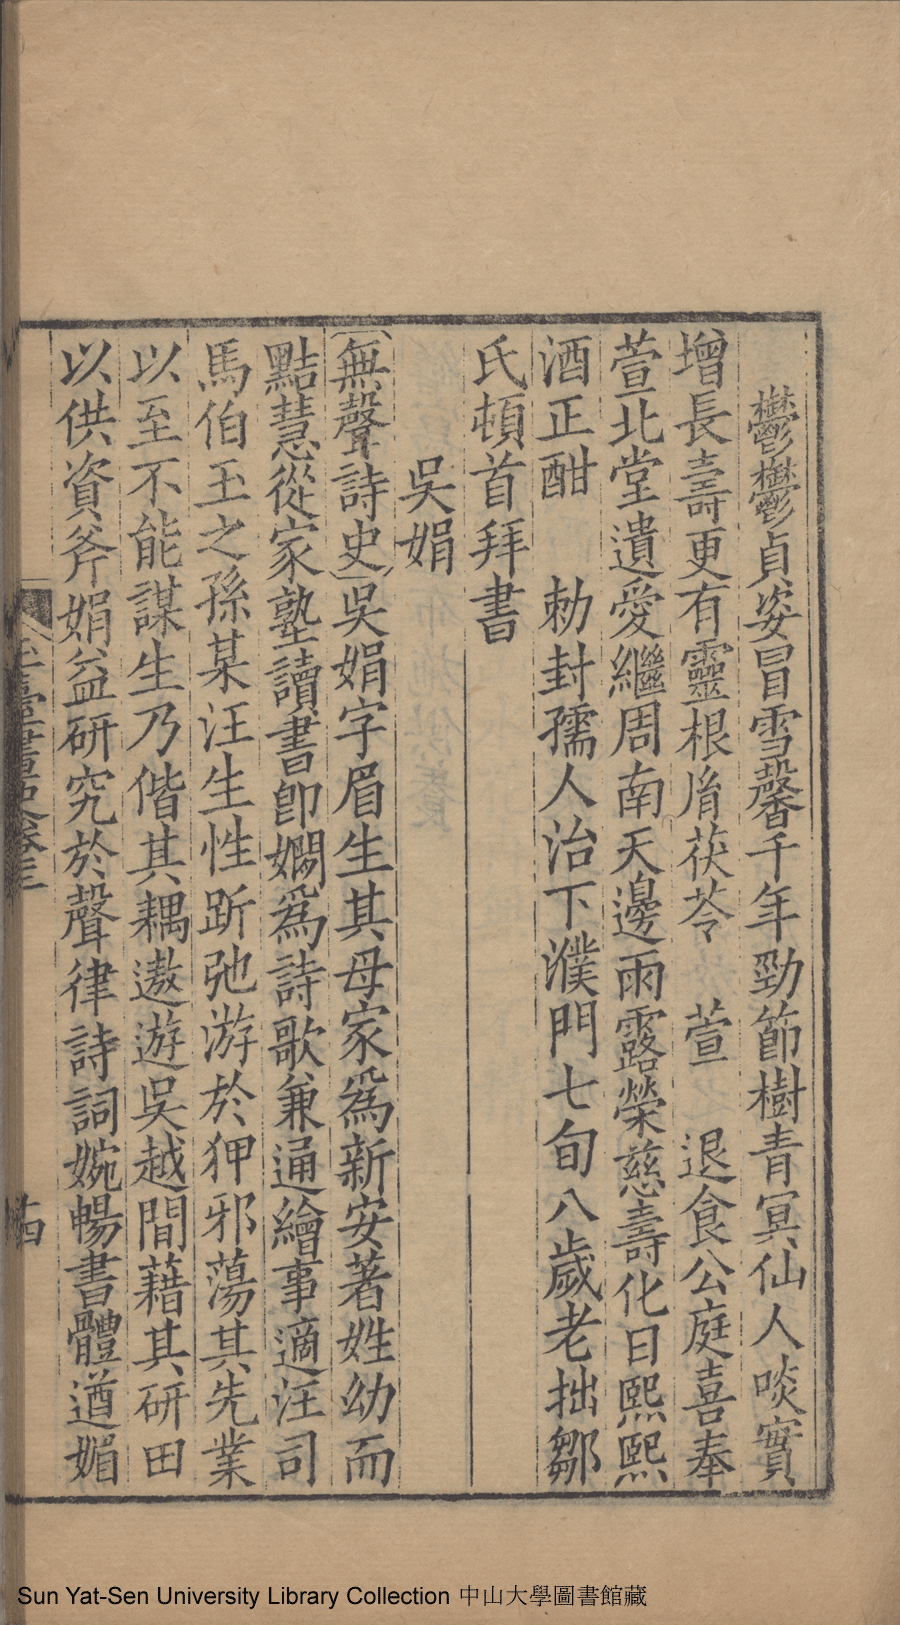 鬱鬱貞姿冒雪馨千年勁節樹青冥仙人啖實
增長壽更有靈根胤茯苓　萱　退食公庭喜奉
萱北堂遺愛繼周南天邊雨露榮慈壽化日熙熙
酒正酣　勑封孺人治下濮門七旬八歲老拙鄒
氏頓首拜書
吳娟
無聲詩史吳娟字眉生其母家爲新安著姓幼而
黠慧從家塾讀書卽嫻爲詩歌兼通繪事適汪司
馬伯玉之孫某汪生性跅弛游於狎邪蕩其先業
以至不能謀生乃偕其耦遨遊吳越間藉其研田
以供資斧娟益研究於聲律詩詞婉暢書體遒媚
玉臺畫史卷三
十四
Sun Yat-Sen University Library Collection 中山大學圖書館藏